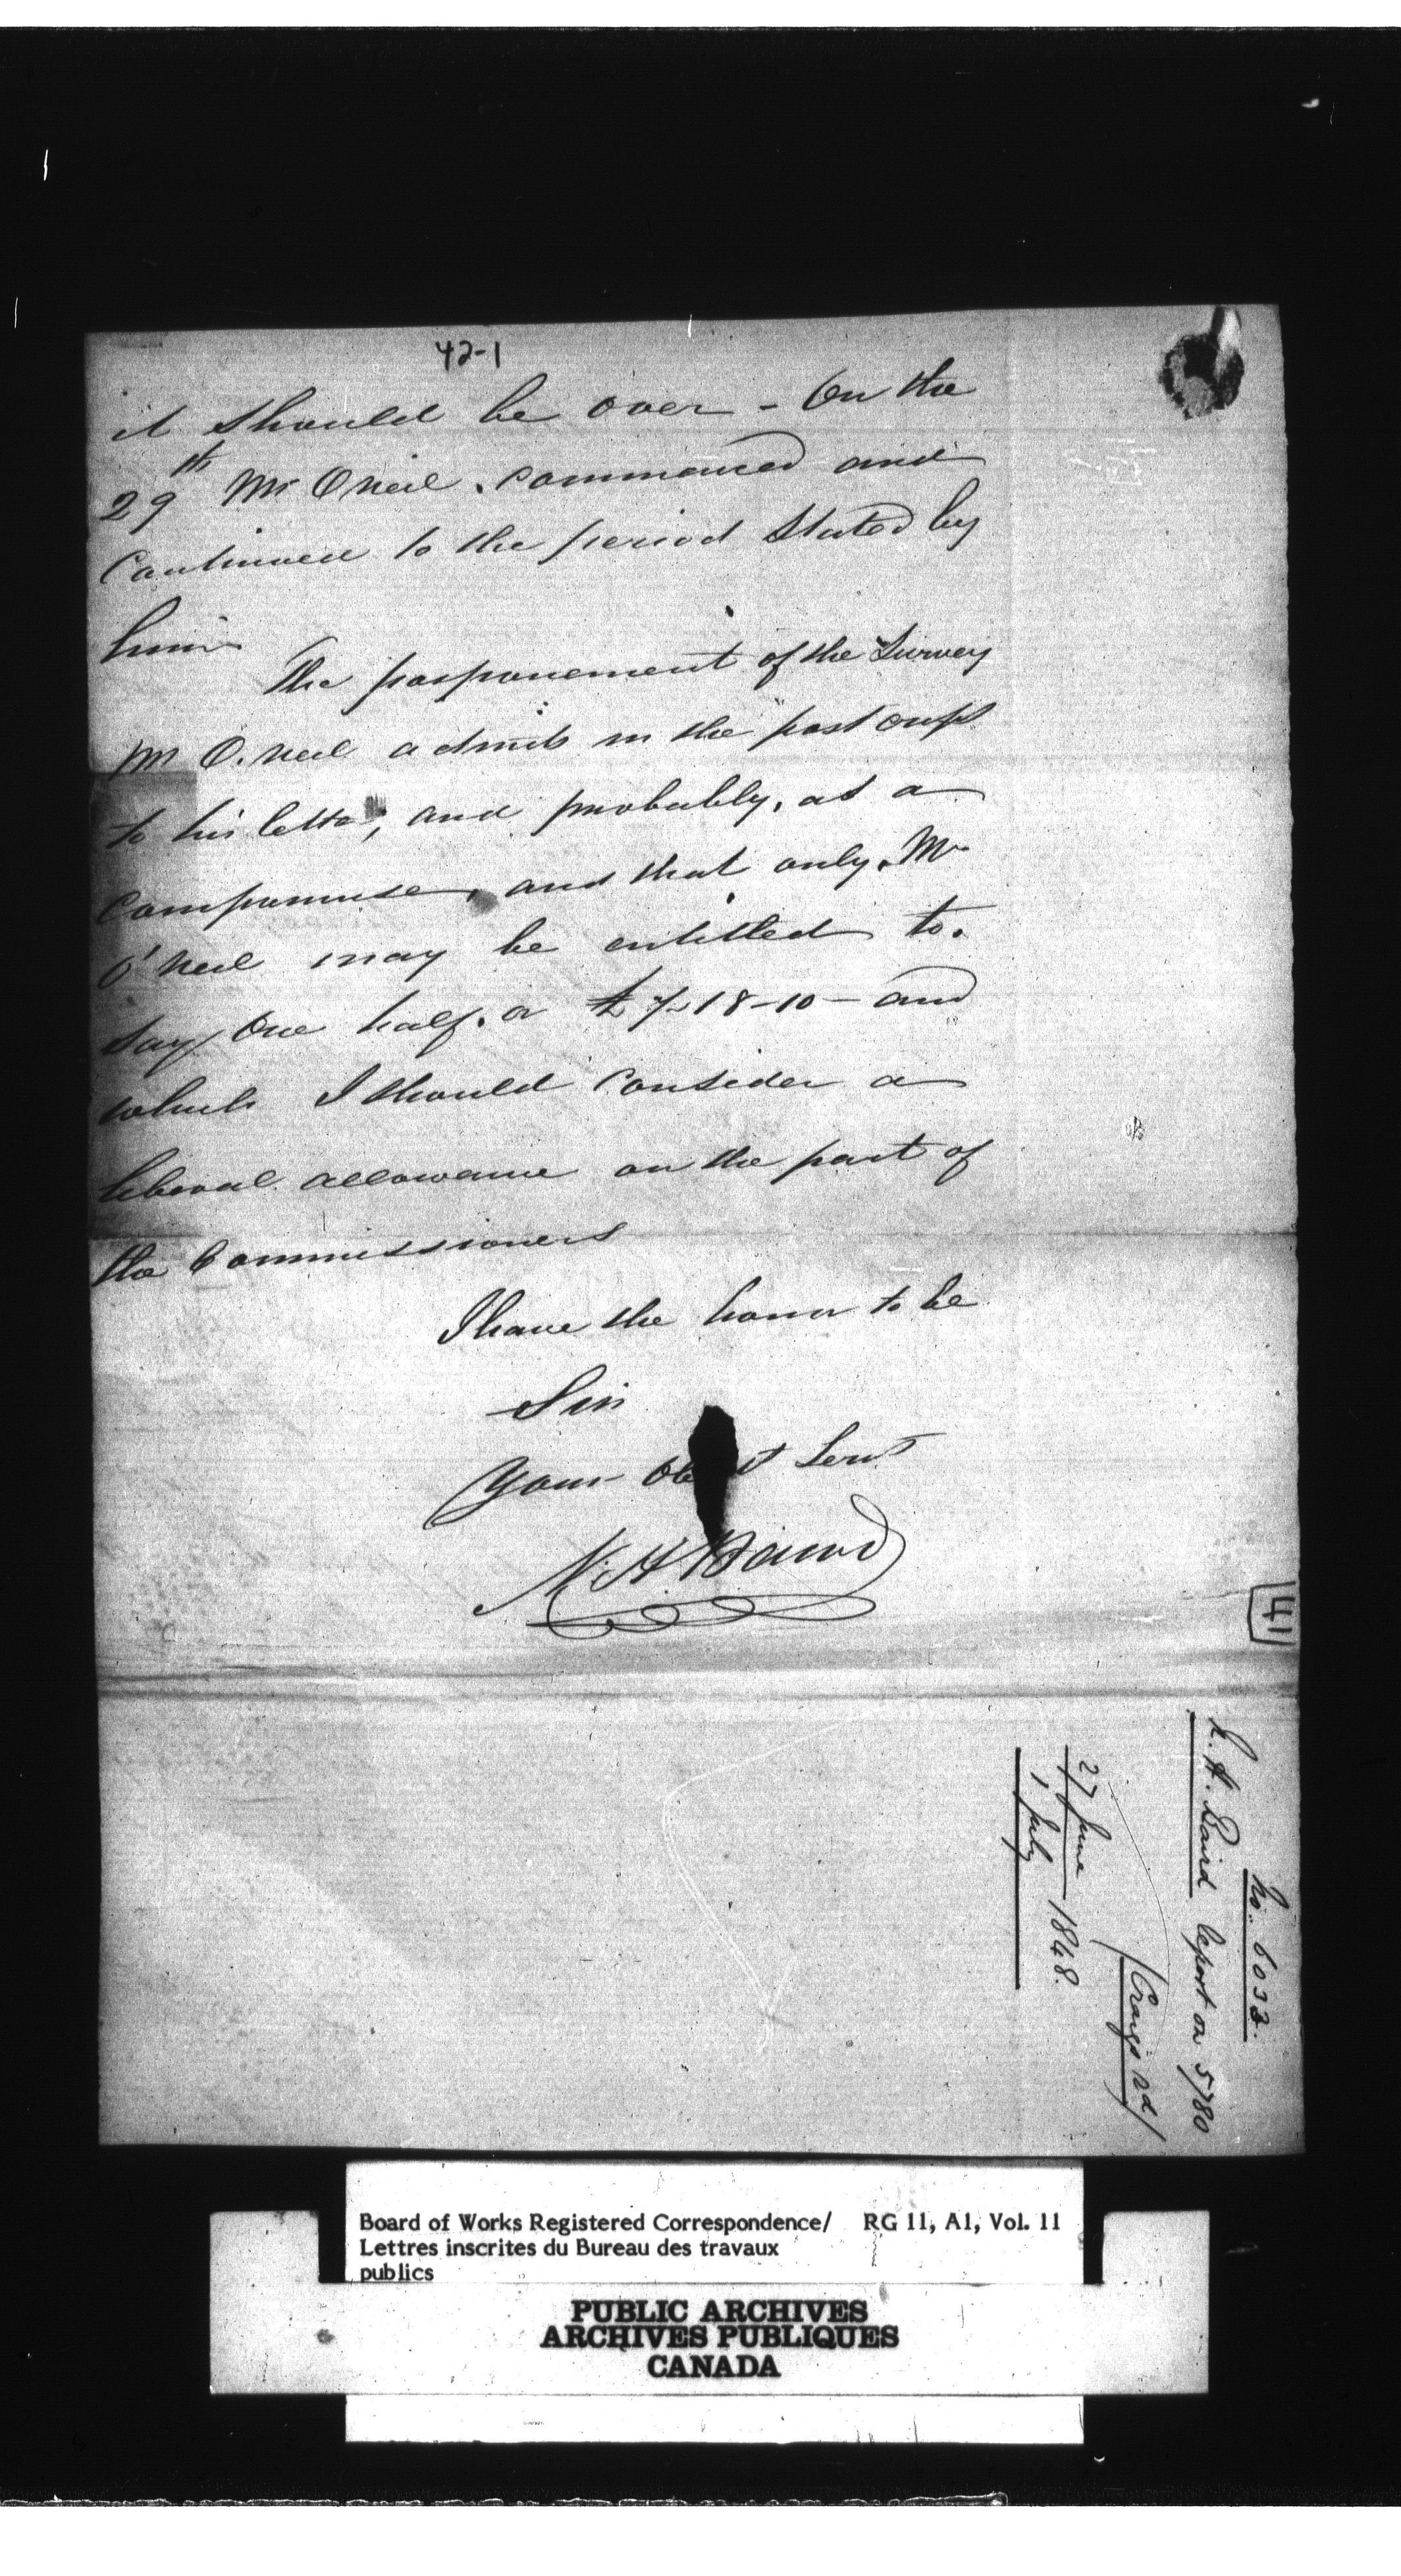 42-1
it should be over - On the
29th Mr O.Neil. commenced and
Continued to the period Stated by
him
The posponement of the Survey
Mr O.Neil admits in the post cript
to his letter; and probably, as a
Compromise, and that only, Mr
O'Neil may be entitled to.
Say One half. or £7-18-10 - and
which I should Consider a
liberal allowance on the part of
the Commissioners
I have the honor to be
Sir
Your Obt Servt
N. H Baird
41
No. 6033.
N. H. Baird Report on 5780
/Craigs rd/
27 June
1848.
1 July
Board of Works Registered Correspondence/ RG 11, A1, Vol. 11
Lettres inscrites du Bureau des travaux
publics
PUBLIC ARCHIVES
ARCHIVES PUBLIQUES
CANADA